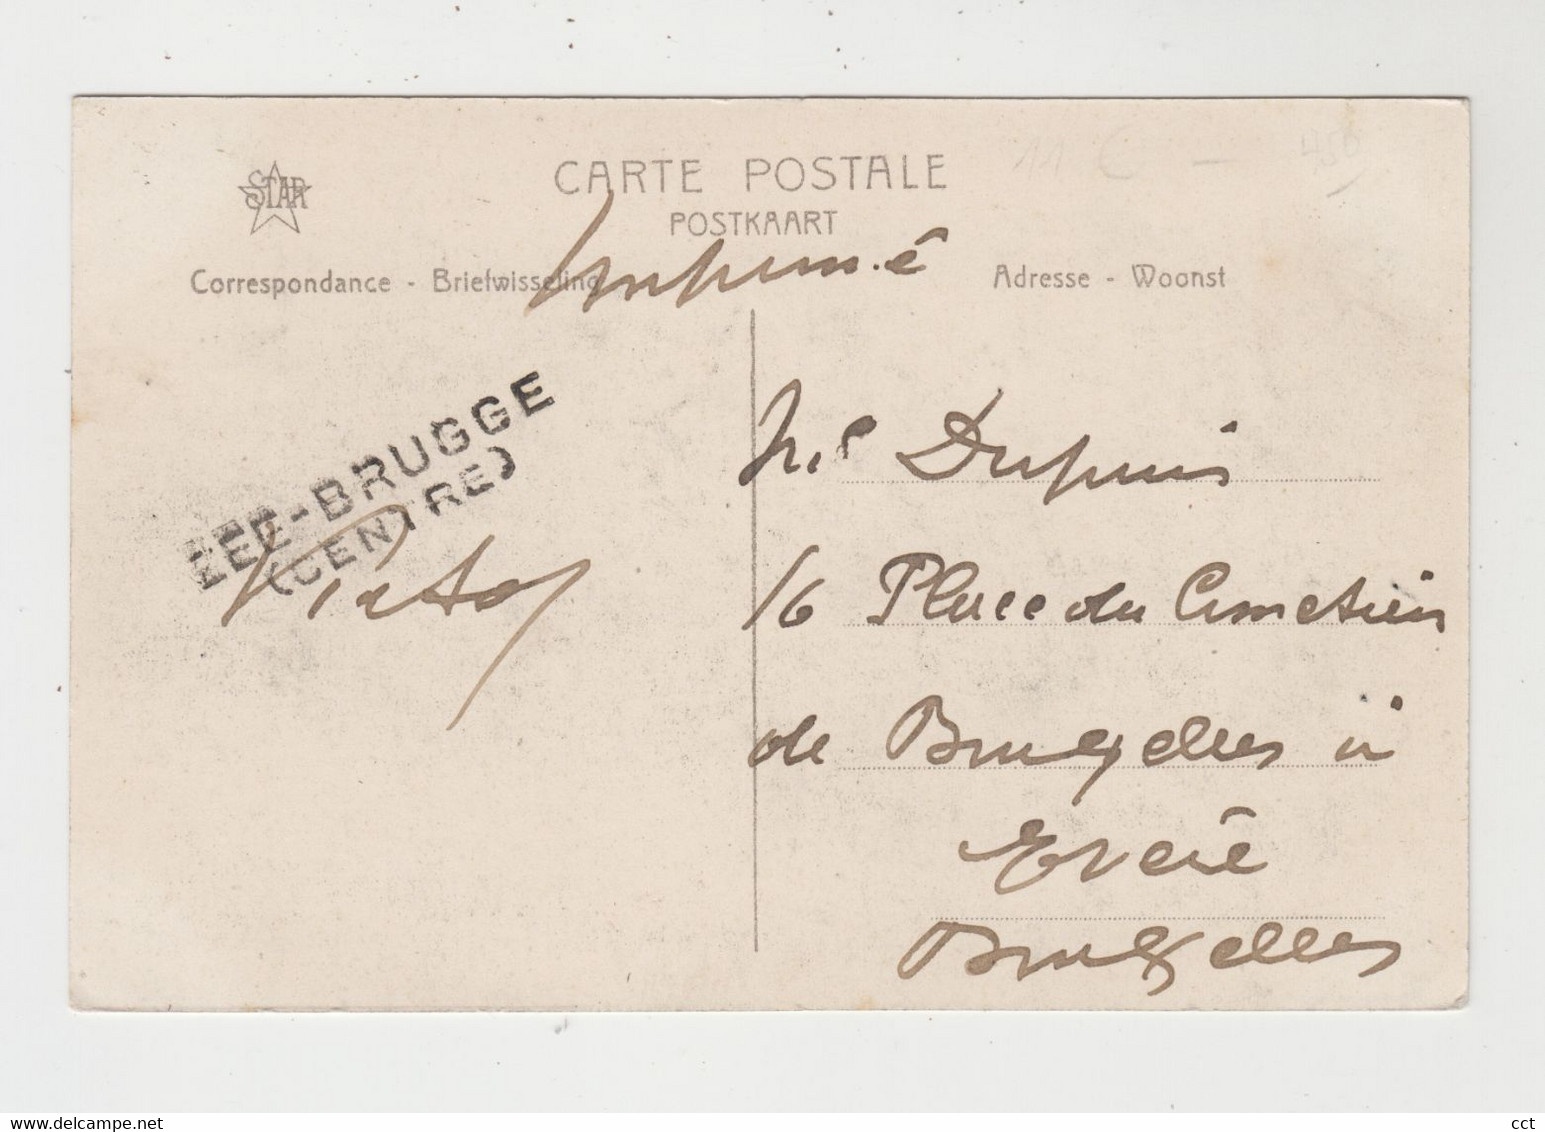 STAR
CARTE POSTALE
POSTKAART
Imprimé
Correspondance - Briefwisseling
Adresse - Woonst
ZEE-BRUGGE
(CENTRE)
Dupuis
16 Place du Cimetière
de Bruxelles à
Evere
Bruxelles
www.delcampe.net
cct